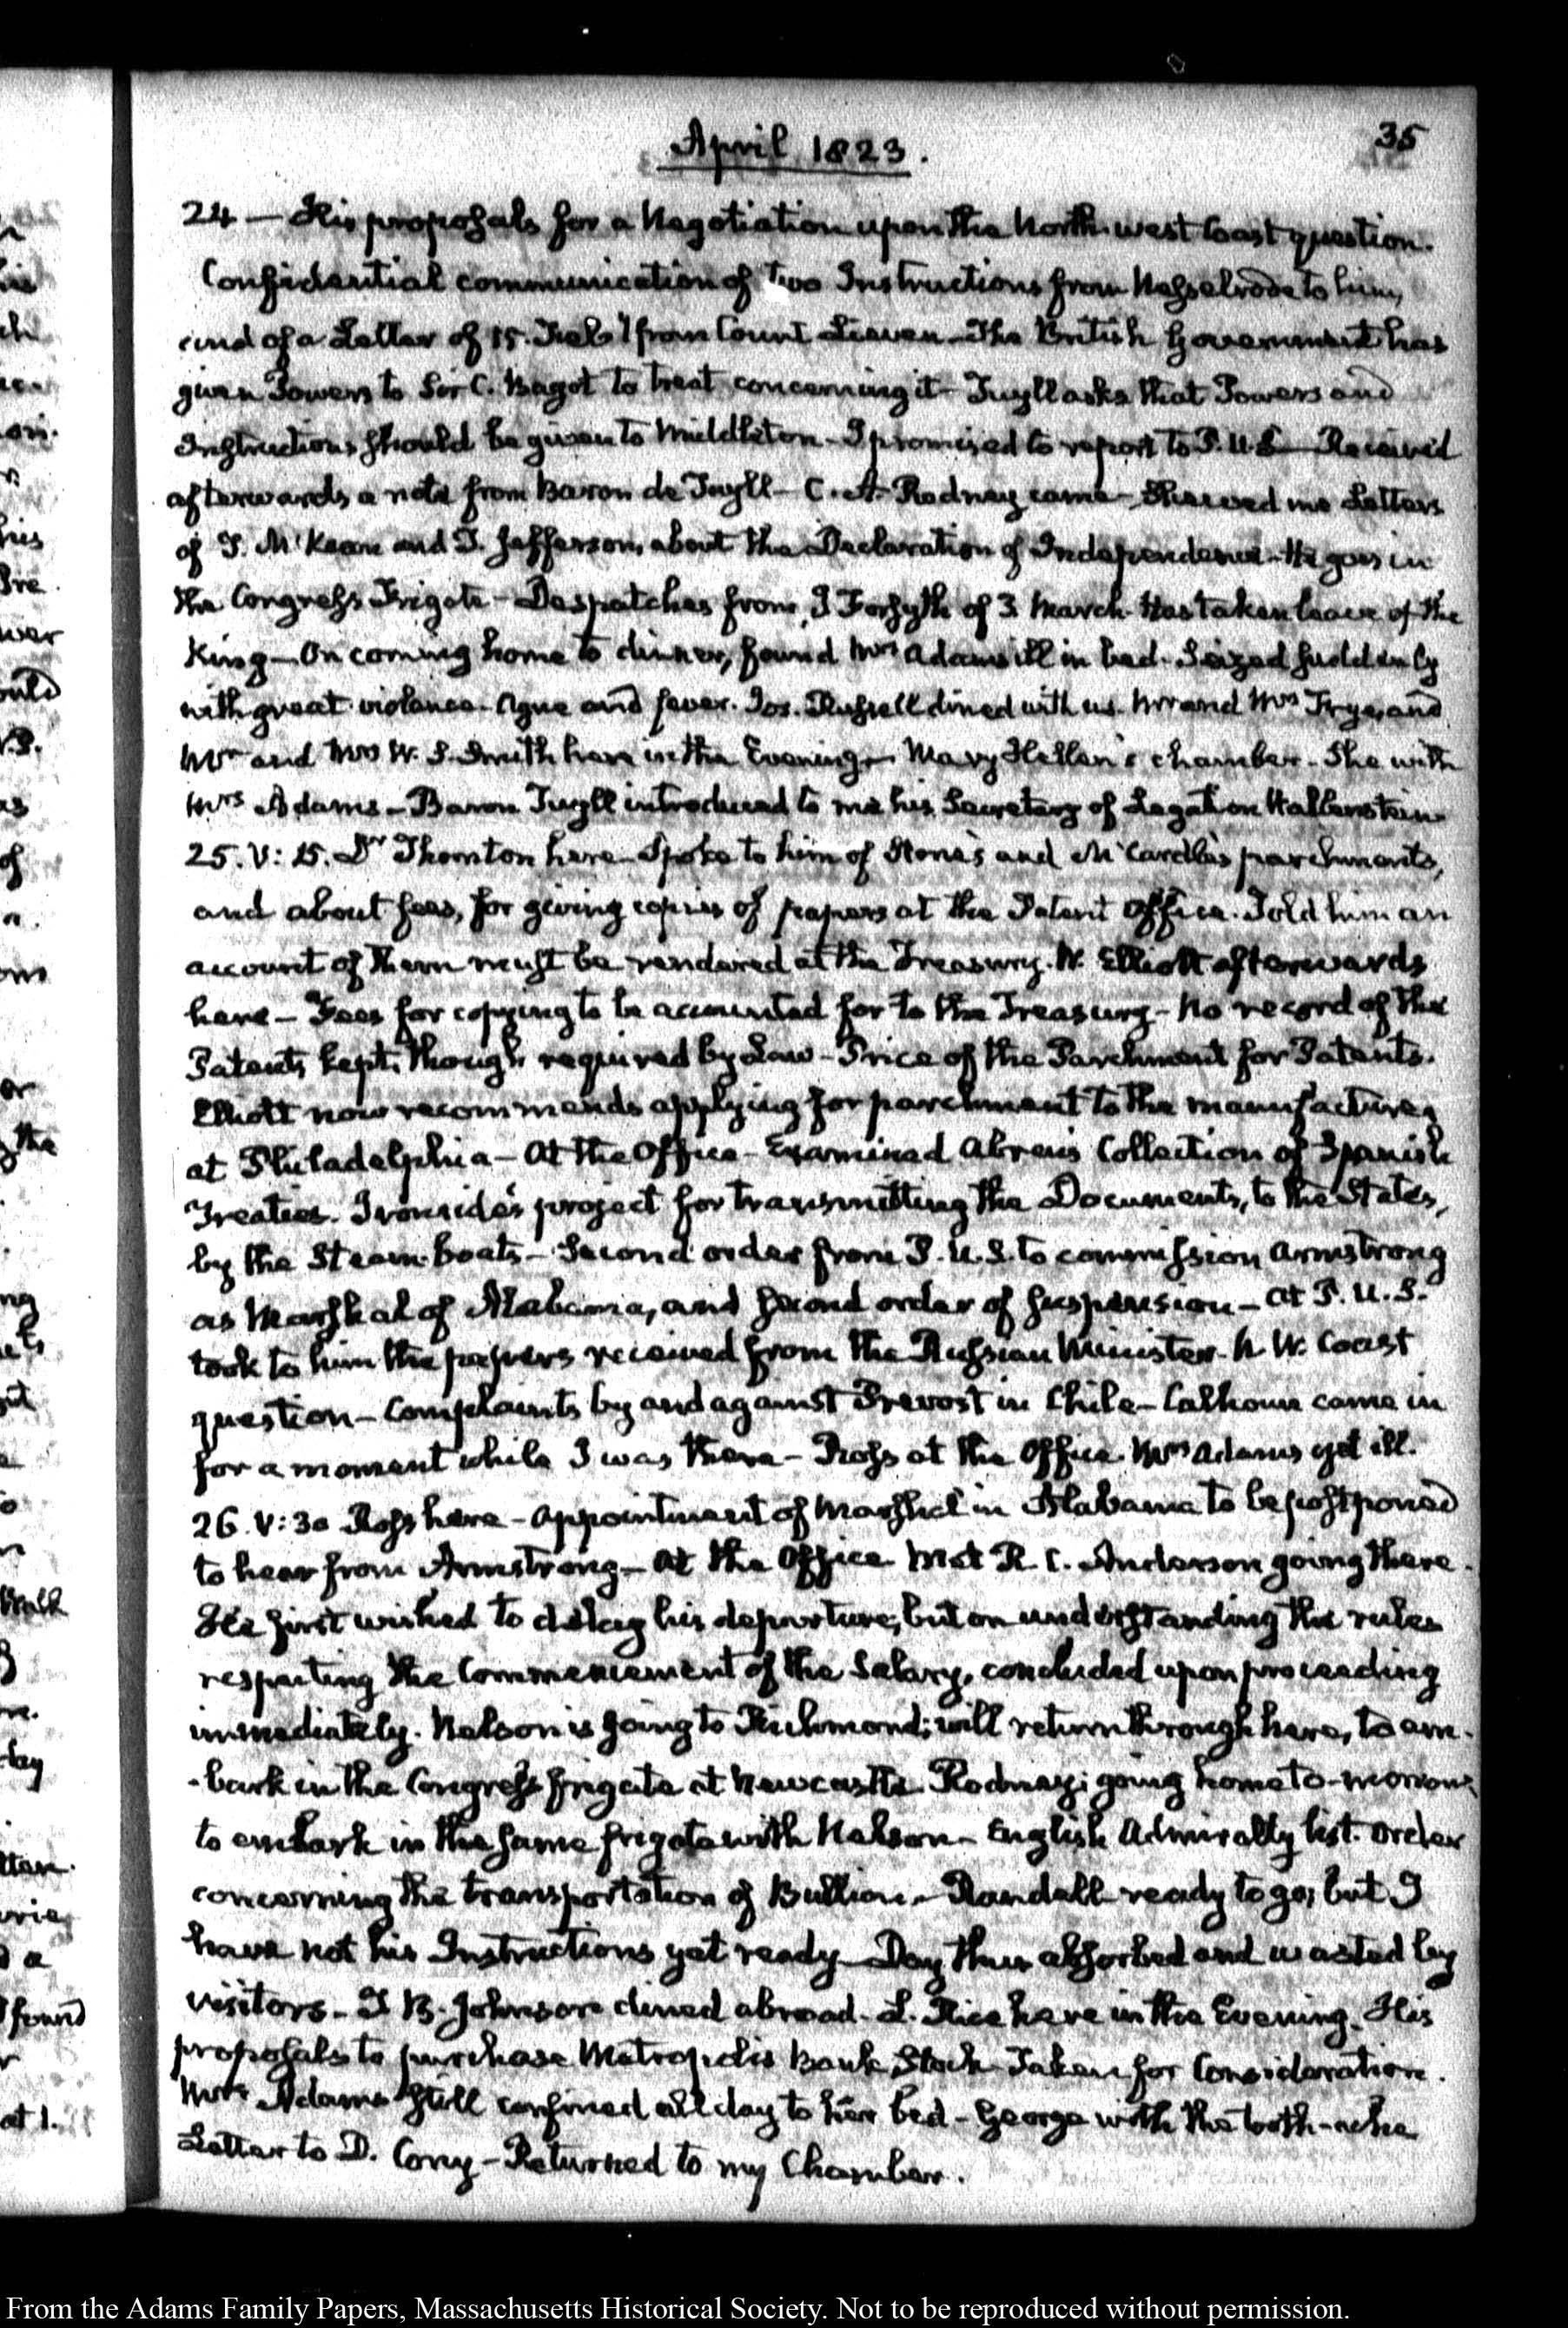 April 1823.
35
24 — His proposals for a Negotiation upon the North-west Coast question.
Confidential communication of two Instructions from Nesselrode to him,
and of a Letter of 15. Feby from Count Lieven — The British Government has
given Powers to Sir C. Bagot to treat concerning it — Tuyll asks that Powers and
Instructions should be given to Middleton — I promised to report to P.U.S — Received
afterwards a note from Baron de Tuyll — C. A. Rodney came — Shewed me Letters
of T. McKean and T. Jefferson, about the Declaration of Independence — He goes in
the Congress Frigate — Despatches from J Forsyth of 3 March. Has taken leave of the
King — On coming home to dinner, found Mrs Adams ill in bed. Seized suddenly
with great violence. Ague and fever. Jos. Russell dined with us. Mr and Mrs Frye, and
Mr and Mrs W. S. Smith here in the Evening — Mary Hellen's chamber. She with
Mrs Adams — Baron Tuyll introduced to me his Secretary of Legation Wallenstein.
25. V: 15. Dr Thornton here — Spoke to him of Stone's and McCardle's parchments,
and about fees, for giving copies of papers at the Patent Office. Told him an
account of them must be rendered at the Treasury. W. Elliott afterwards
here — Fees for copying to be accounted for to the Treasury — No record of the
Patents kept, though required by Law — Price of the Parchment for Patents.
Elliott now recommends applying for parchment to the manufacturer
at Philadelphia — At the Office — Examined Abreu's Collection of Spanish
Treaties. Ironside's project for transmitting the Documents, to the States,
by the Steam-boats — Second order from P.U.S. to commission Armstrong
as Marshal of Alabama, and second order of suspension — At P.U.S.
took to him the papers received from the Russian Minister. N W. Coast
question — Complaints by and against Prevost in Chile — Calhoun came in
for a moment while I was there — Ross at the Office. Mrs Adams yet ill.
26. V: 30 Ross here — Appointment of Marshal in Alabama to be postponed
to hear from Armstrong — At the Office Met R. C. Anderson going there.
He first wished to delay his departure, but on understanding the rules
respecting the Commencement of the Salary, concluded upon proceeding
immediately. Nelson is going to Richmond; will return through here, to em-
-bark in the Congress frigate at Newcastle Rodney; going home to-morrow,
to embark in the same frigate with Nelson — English Admiralty list. Order
concerning the transportation of Bullion — Randall ready to go; but I
have not his Instructions yet ready — Day thus absorbed and wasted by
visitors — T B. Johnson dined abroad. L. Rice here in the Evening. His
proposals to purchase Metropolis Bank Stock. Taken for Consideration.
Mrs Adams still confined all day to her bed — George with the tooth-ache
Letter to D. Cony — Returned to my Chamber.
From the Adams Family Papers, Massachusetts Historical Society. Not to be reproduced without permission.